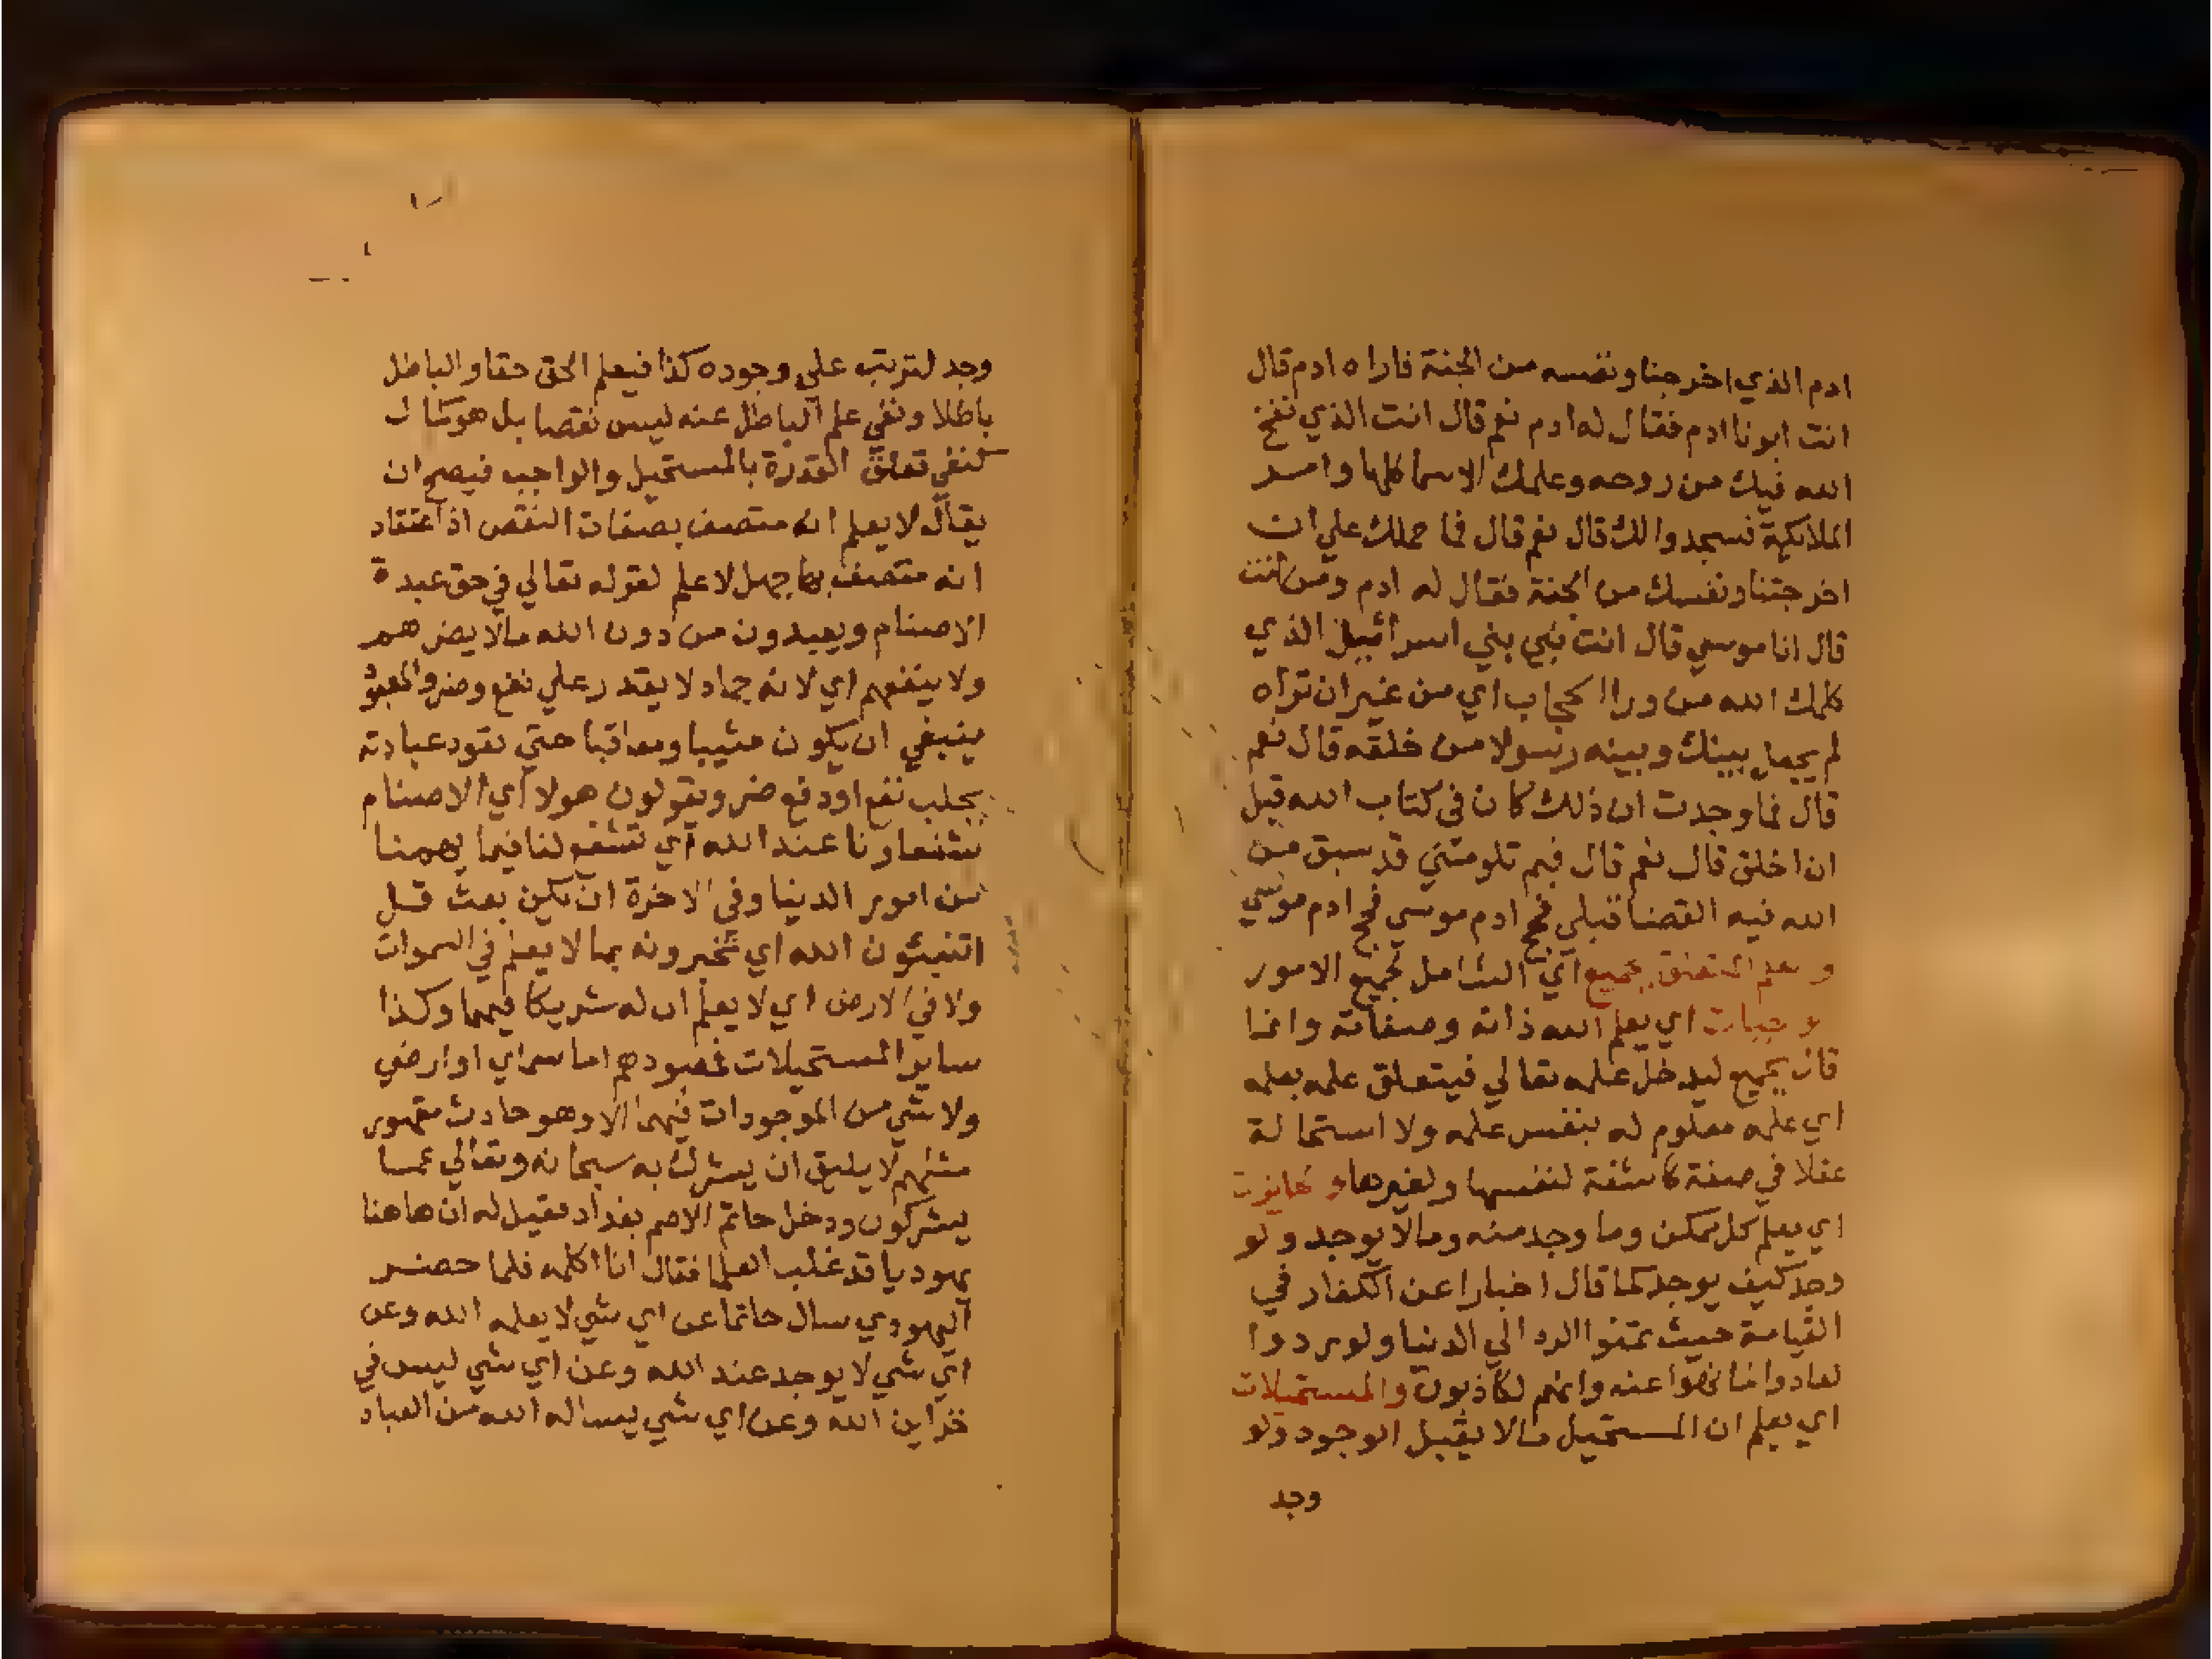 ادم الذي اخرجنا ونفسه من الجنة فاراه ادم قال
انت ابونا ادم فقال له ادم نعم قال انت الذي نفخ
الله فيك من روحه وعلمك الاسما كلها وامر
الملائكة فسجدوا لك قال نعم قال فما حملك علي ان
اخرجتنا ونفسك من الجنة فقال له ادم ومن انت
قال انا موسي قال انت نبي بني اسرائيل الذي
كلمك الله من ورا الحجاب اي من غير ان تراه
لم يجعل بينك وبينه رسولا من خلقه قال نعم
قال فما وجدت ان ذلك كان في كتاب الله قبل
ان اخلق قال نعم قال فبم تلومني قد سبق من
الله فيه القضا قبلي فحج ادم موسي فحج ادم موسي
والعلم المتعلق بجميع اي الشامل لجميع الامور
الواجبات اي يعلم الله ذاته وصفاته وانما
قال بجميع ليدخل علمه تعالي فيتعلق علمه بعلمه
اي علمه معلوم له بنفس علمه ولا استحالة
عقلا في صفة كاشفة لنفسها ولغيرها والجايزات
اي يعلم كل ممكن وما وجد منه وما لا يوجد ولو
وجد كيف يوجد كما قال اخبارا عن الكفار في
القيامة حيث تمنوا الرد الي الدنيا ولو ردوا
لعادوا لما نهوا عنه وانهم لكاذبون والمستحيلات
اي يعلم ان المستحيل مالا يقبل الوجود ولو
وجد
وجد لترتب علي وجوده كذا فيعلم الحق حقا والباطل
باطلا ونفي علم الباطل عنه ليس نقصا بل هو كمال
كنفي تعلق القدرة بالمستحيل والواجب فيصح ان
يقال لا يعلم انه متصف بصفات النقص اذ اعتقاد
انه متصف بها جهل لا علم لقوله تعالي في حق عبدة
الاصنام ويعبدون من دون الله مالا يضرهم
ولا ينفعهم اي لانه جماد لا يقدر علي نفع وضر والمعبود
ينبغي ان يكون مثيبا ومعاقبا حتي تعود عبادته
بجلب نفع او دفع ضر ويقولون هولا اي الاصنام
شفعاونا عند الله اي تشفع لنا فيما يهمنا
من امور الدنيا وفي الاخرة ان يكن بعث قل
اتنبئون الله اي تخبرونه بما لا يعلم في السموات
ولا في الارض اي لا يعلم ان له شريكا فيهما وكذا
ساير المستحيلات فمعبودهم اما سماي او ارضي
ولا شي من الموجودات فيهما الا وهو حادث مقهور
مثلهم لا يليق ان يشرك به سبحانه وتعالي عما
يشركون ودخل حاتم الاصم بغداد فقيل له ان هاهنا
يهوديا قد غلب العلما فقال انا اكلمه فلما حضر
اليهودي سال حاتما عن اي شي لا يعلمه الله وعن
اي شي لا يوجد عند الله وعن اي شي ليس في
خزاين الله وعن اي شي يساله الله من العباد